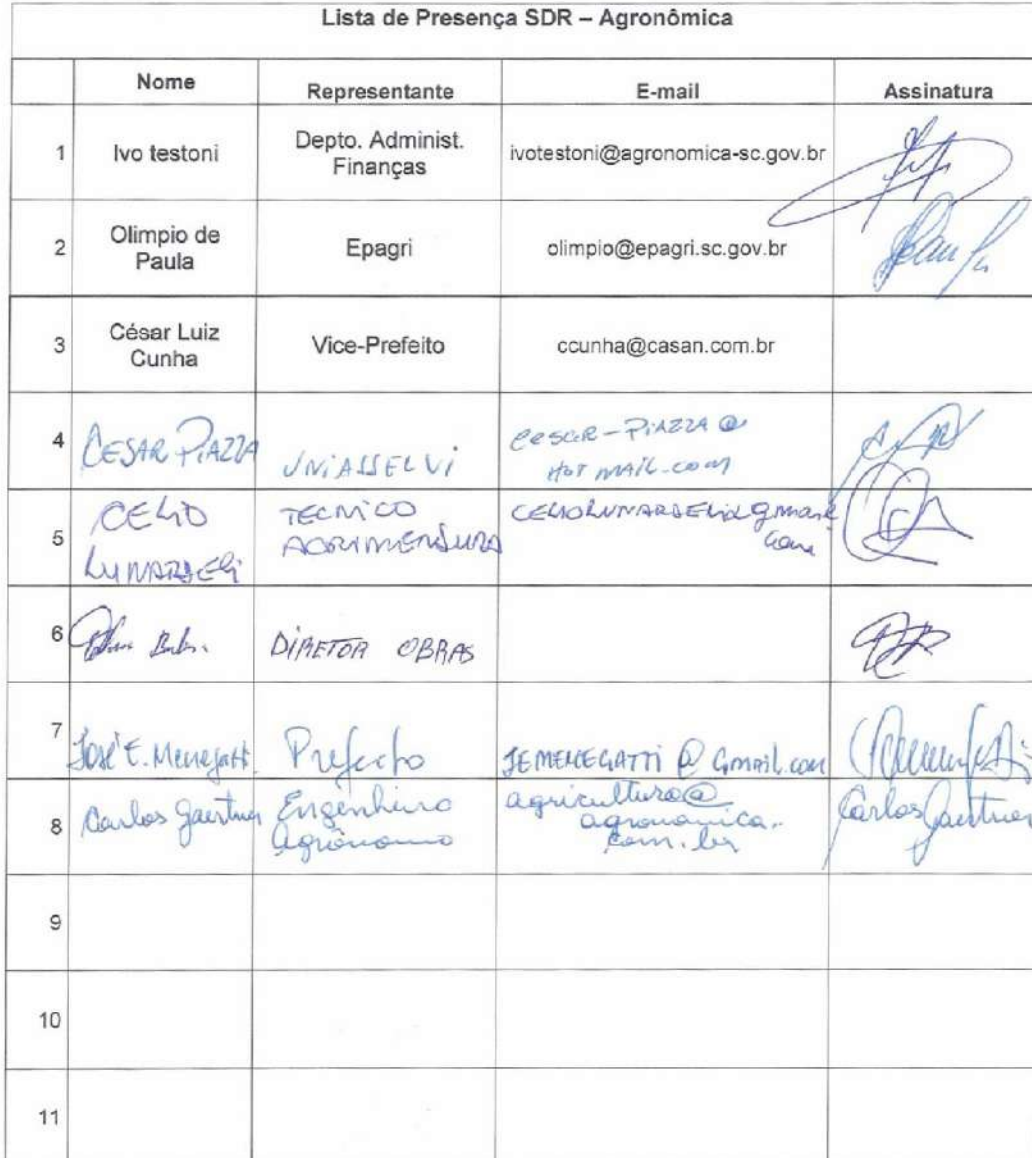 Lista de Presença SDR – Agronômica
Nome Representante E-mail Assinatura
1 Ivo testoni Depto. Administ. Finanças ivotestoni@agronomica-sc.gov.br
2 Olimpio de Paula Epagri olimpio@epagri.sc.gov.br
3 César Luiz Cunha Vice-Prefeito ccunha@casan.com.br
4 CESAR PIAZZA UNIASSELVI CESAR-PIAZZA@ HOTMAIL.COM
5 CELIO LUNARDELI TECNICO AGRIMENSURA
6 DIRETOR OBRAS
7 José E. Menegatti Prefeito JEMENEGATTI@Gmail.com
8 Carlos Gaertner Engenheiro Agrônomo agricultura@ agronomica. com.br Carlos Gaertner
9
10
11